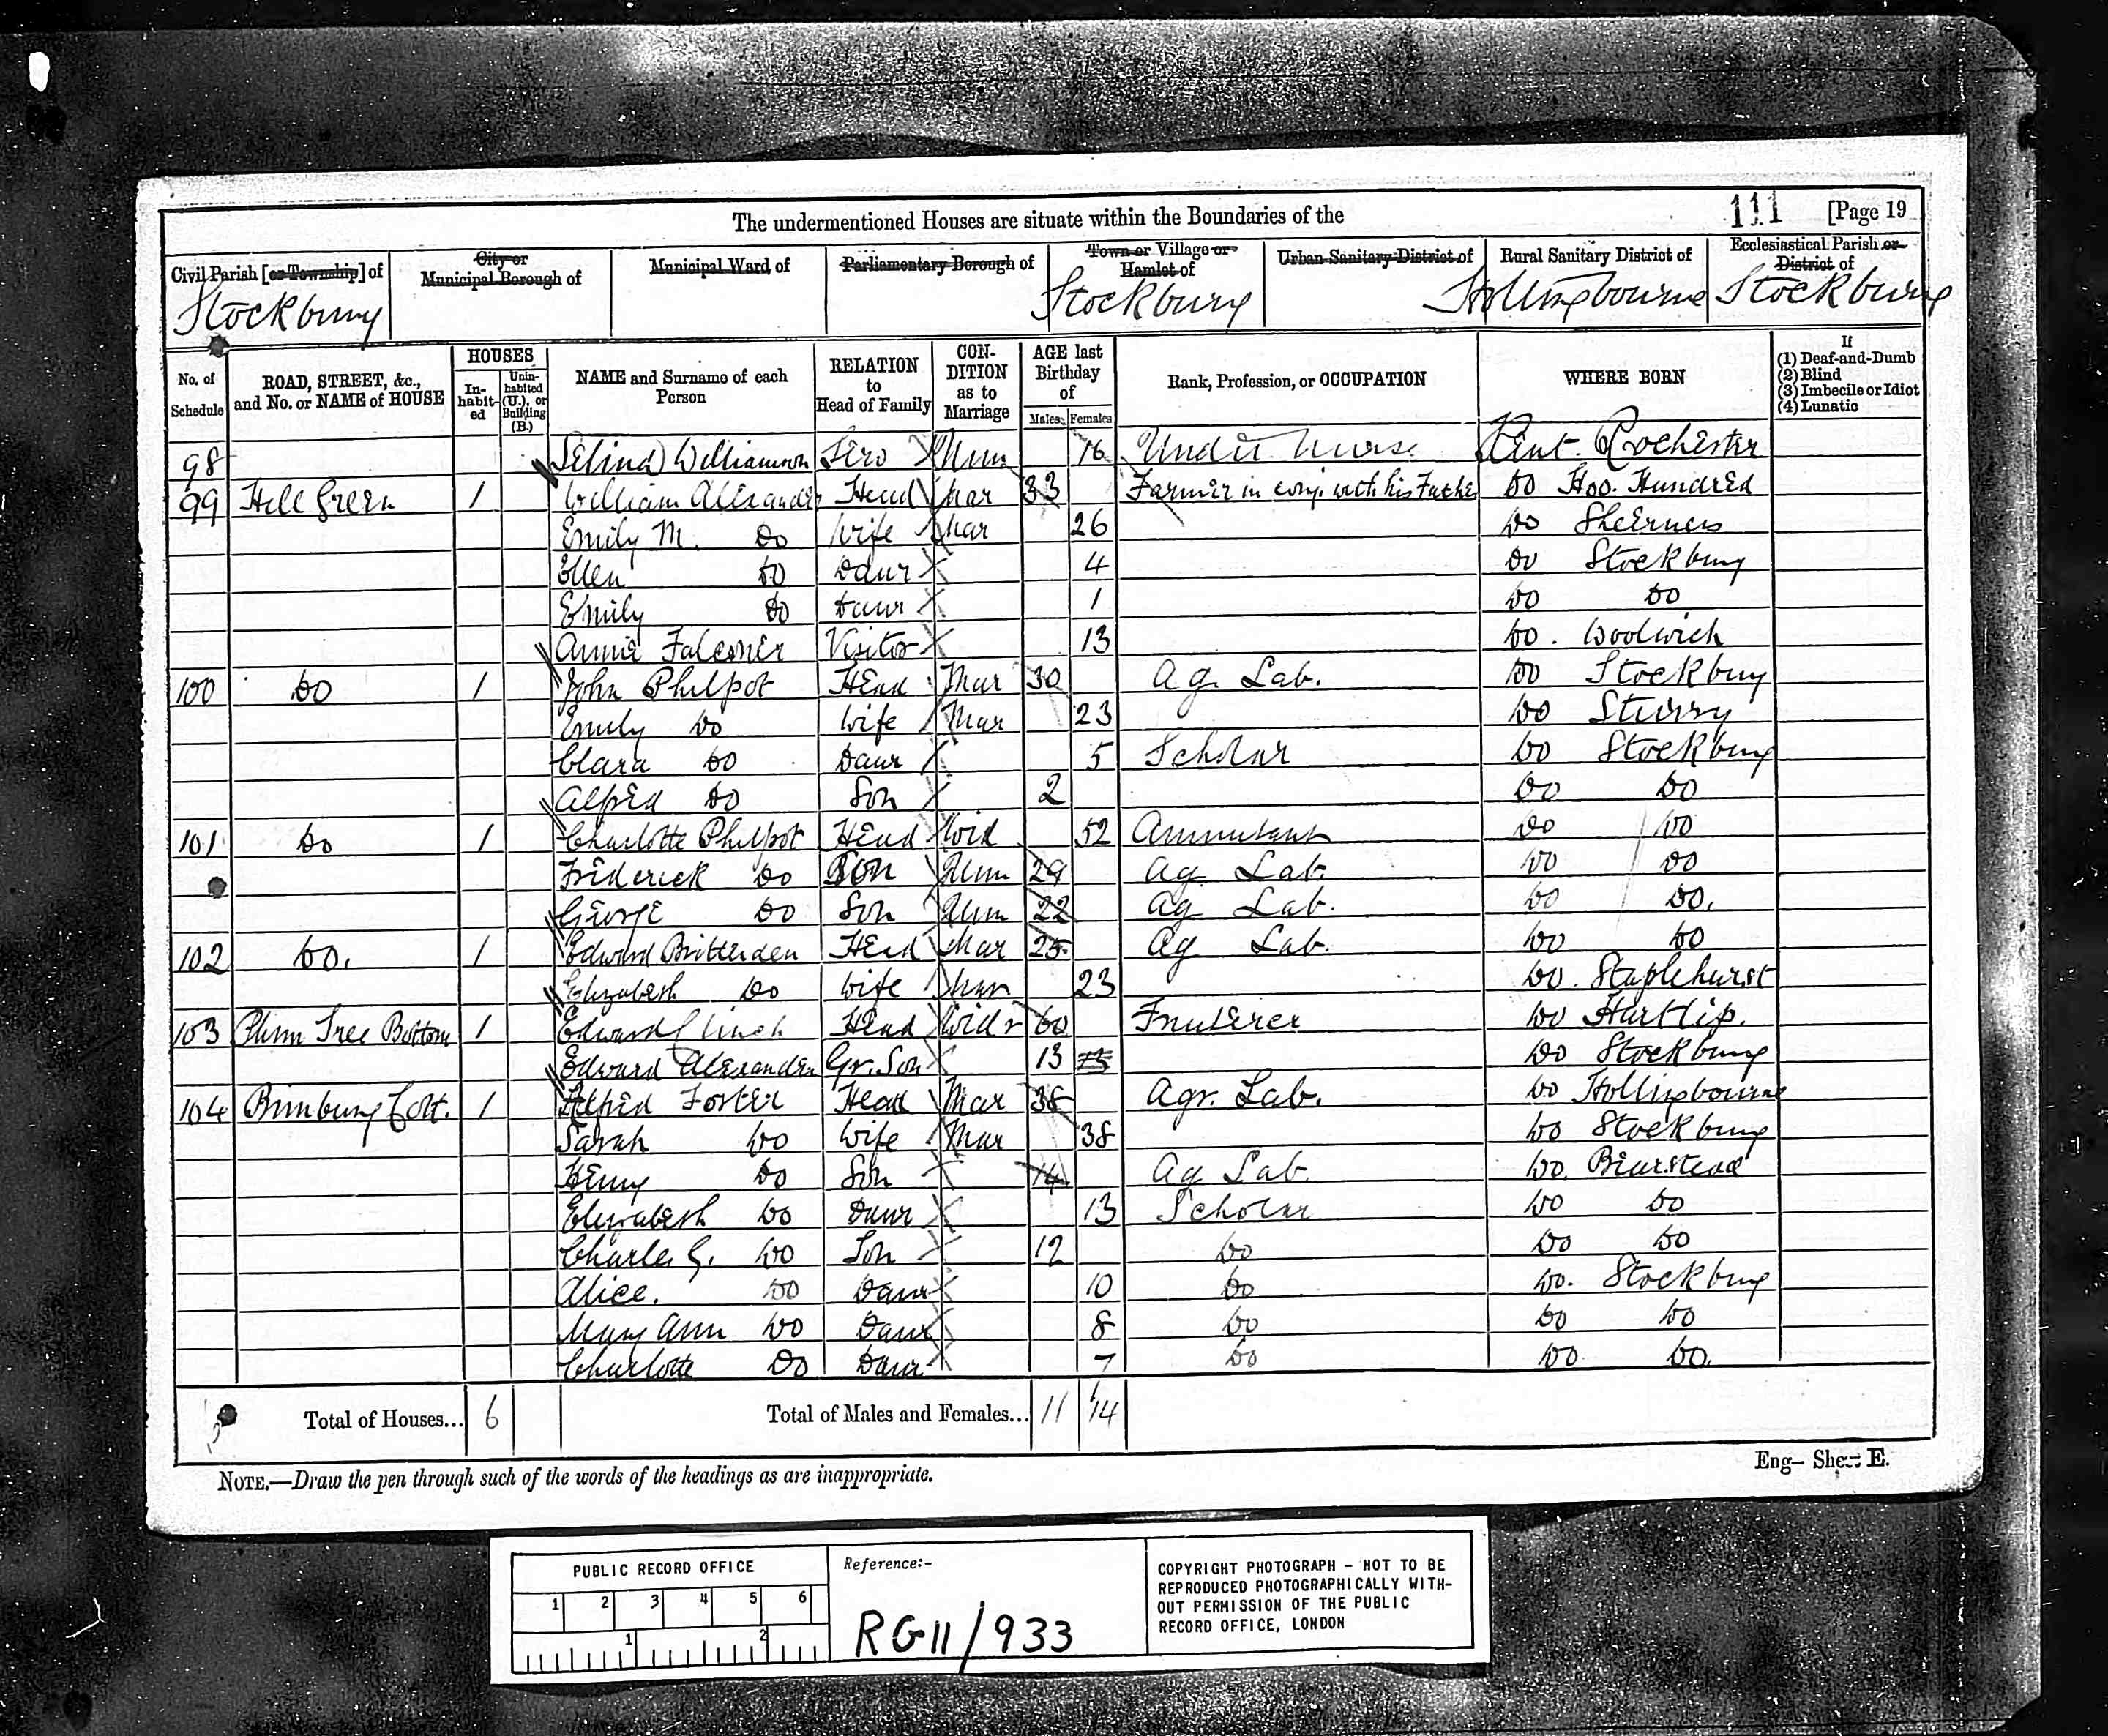 The undermentioned Houses are situate within the Boundaries of the 111 [Page 19
Civil Parish [or Township] of City or Municipal Borough of Municipal Ward of Parliamentary Borough of Town or Village or Hamlet of Urban Sanitary District of Rural Sanitary District of Ecclesiastical Parish or District of
Stockbury Stockbury Hollingbourne Stockbury
No. of Schedule ROAD, STREET, &c., and No. or NAME of HOUSE HOUSES Inhabited Uninhabited (U.), or Building (B.) NAME and Surname of each Person RELATION to Head of Family CONDITION as to Marriage AGE last Birthday of Males Females Rank, Profession, or OCCUPATION WHERE BORN If (1) Deaf-and-Dumb (2) Blind (3) Imbecile or Idiot (4) Lunatic
98 Selina Williamson Serv Unm 16 Under Nurse Kent Rochester
99 Hill Green 1 William Alexander Head Mar 33 Farmer in conj. with his Father Do Hoo Hundred
Emily M. Do Wife Mar 26 Do Sheerness
Ellen Do Daur 4 Do Stockbury
Emily Do Daur 1 Do Do
Annie Visitor 13 Do. Woolwich
100 Do 1 John Philpot Head Mar 30 Ag. Lab. Do Stockbury
Emily Do Wife Mar 23 Do Sturry
Clara Do Daur 5 Scholar Do Stockbury
Alfred Do Son 2 Do Do
101 Do 1 Charlotte Philpot Head Wid 52 Annuitant Do Do
Frederick Do Son Unm 29 Ag Lab Do Do
George Do Son Unm 22 Ag Lab. Do Do.
102 Do. 1 Edward Brittenden Head Mar 25 Ag Lab. Do Do
Elizabeth Do Wife Mar 23 Do. Staplehurst
103 Plum Tree Bottom 1 Edward Clinch Head Widr 60 Fruiterer Do Hartlip.
Edward Alexander Gr. Son 13 Do Stockbury
104 Rumbury Cott. 1 Alfred Foster Head Mar 38 Agr. Lab. Do Hollingbourne
Sarah Do Wife Mar 38 Do Stockbury
Henry Do Son 14 Ag Lab. Do. Bearstead
Elizabeth Do Daur 13 Scholar Do Do
Charles G. Do Son 12 Do Do Do
Alice. Do Daur 10 Do Do. Stockbury
Mary Ann Do Daur 8 Do Do Do
Charlotte Do Daur 7 Do Do Do.
Total of Houses... 6 Total of Males and Females... 11 14
NOTE.—Draw the pen through such of the words of the headings as are inappropriate.
Eng– Sheet E.
PUBLIC RECORD OFFICE
1 2 3 4 5 6
1 2
Reference:-
RG11/933
COPYRIGHT PHOTOGRAPH - NOT TO BE
REPRODUCED PHOTOGRAPHICALLY WITH-
OUT PERMISSION OF THE PUBLIC
RECORD OFFICE, LONDON